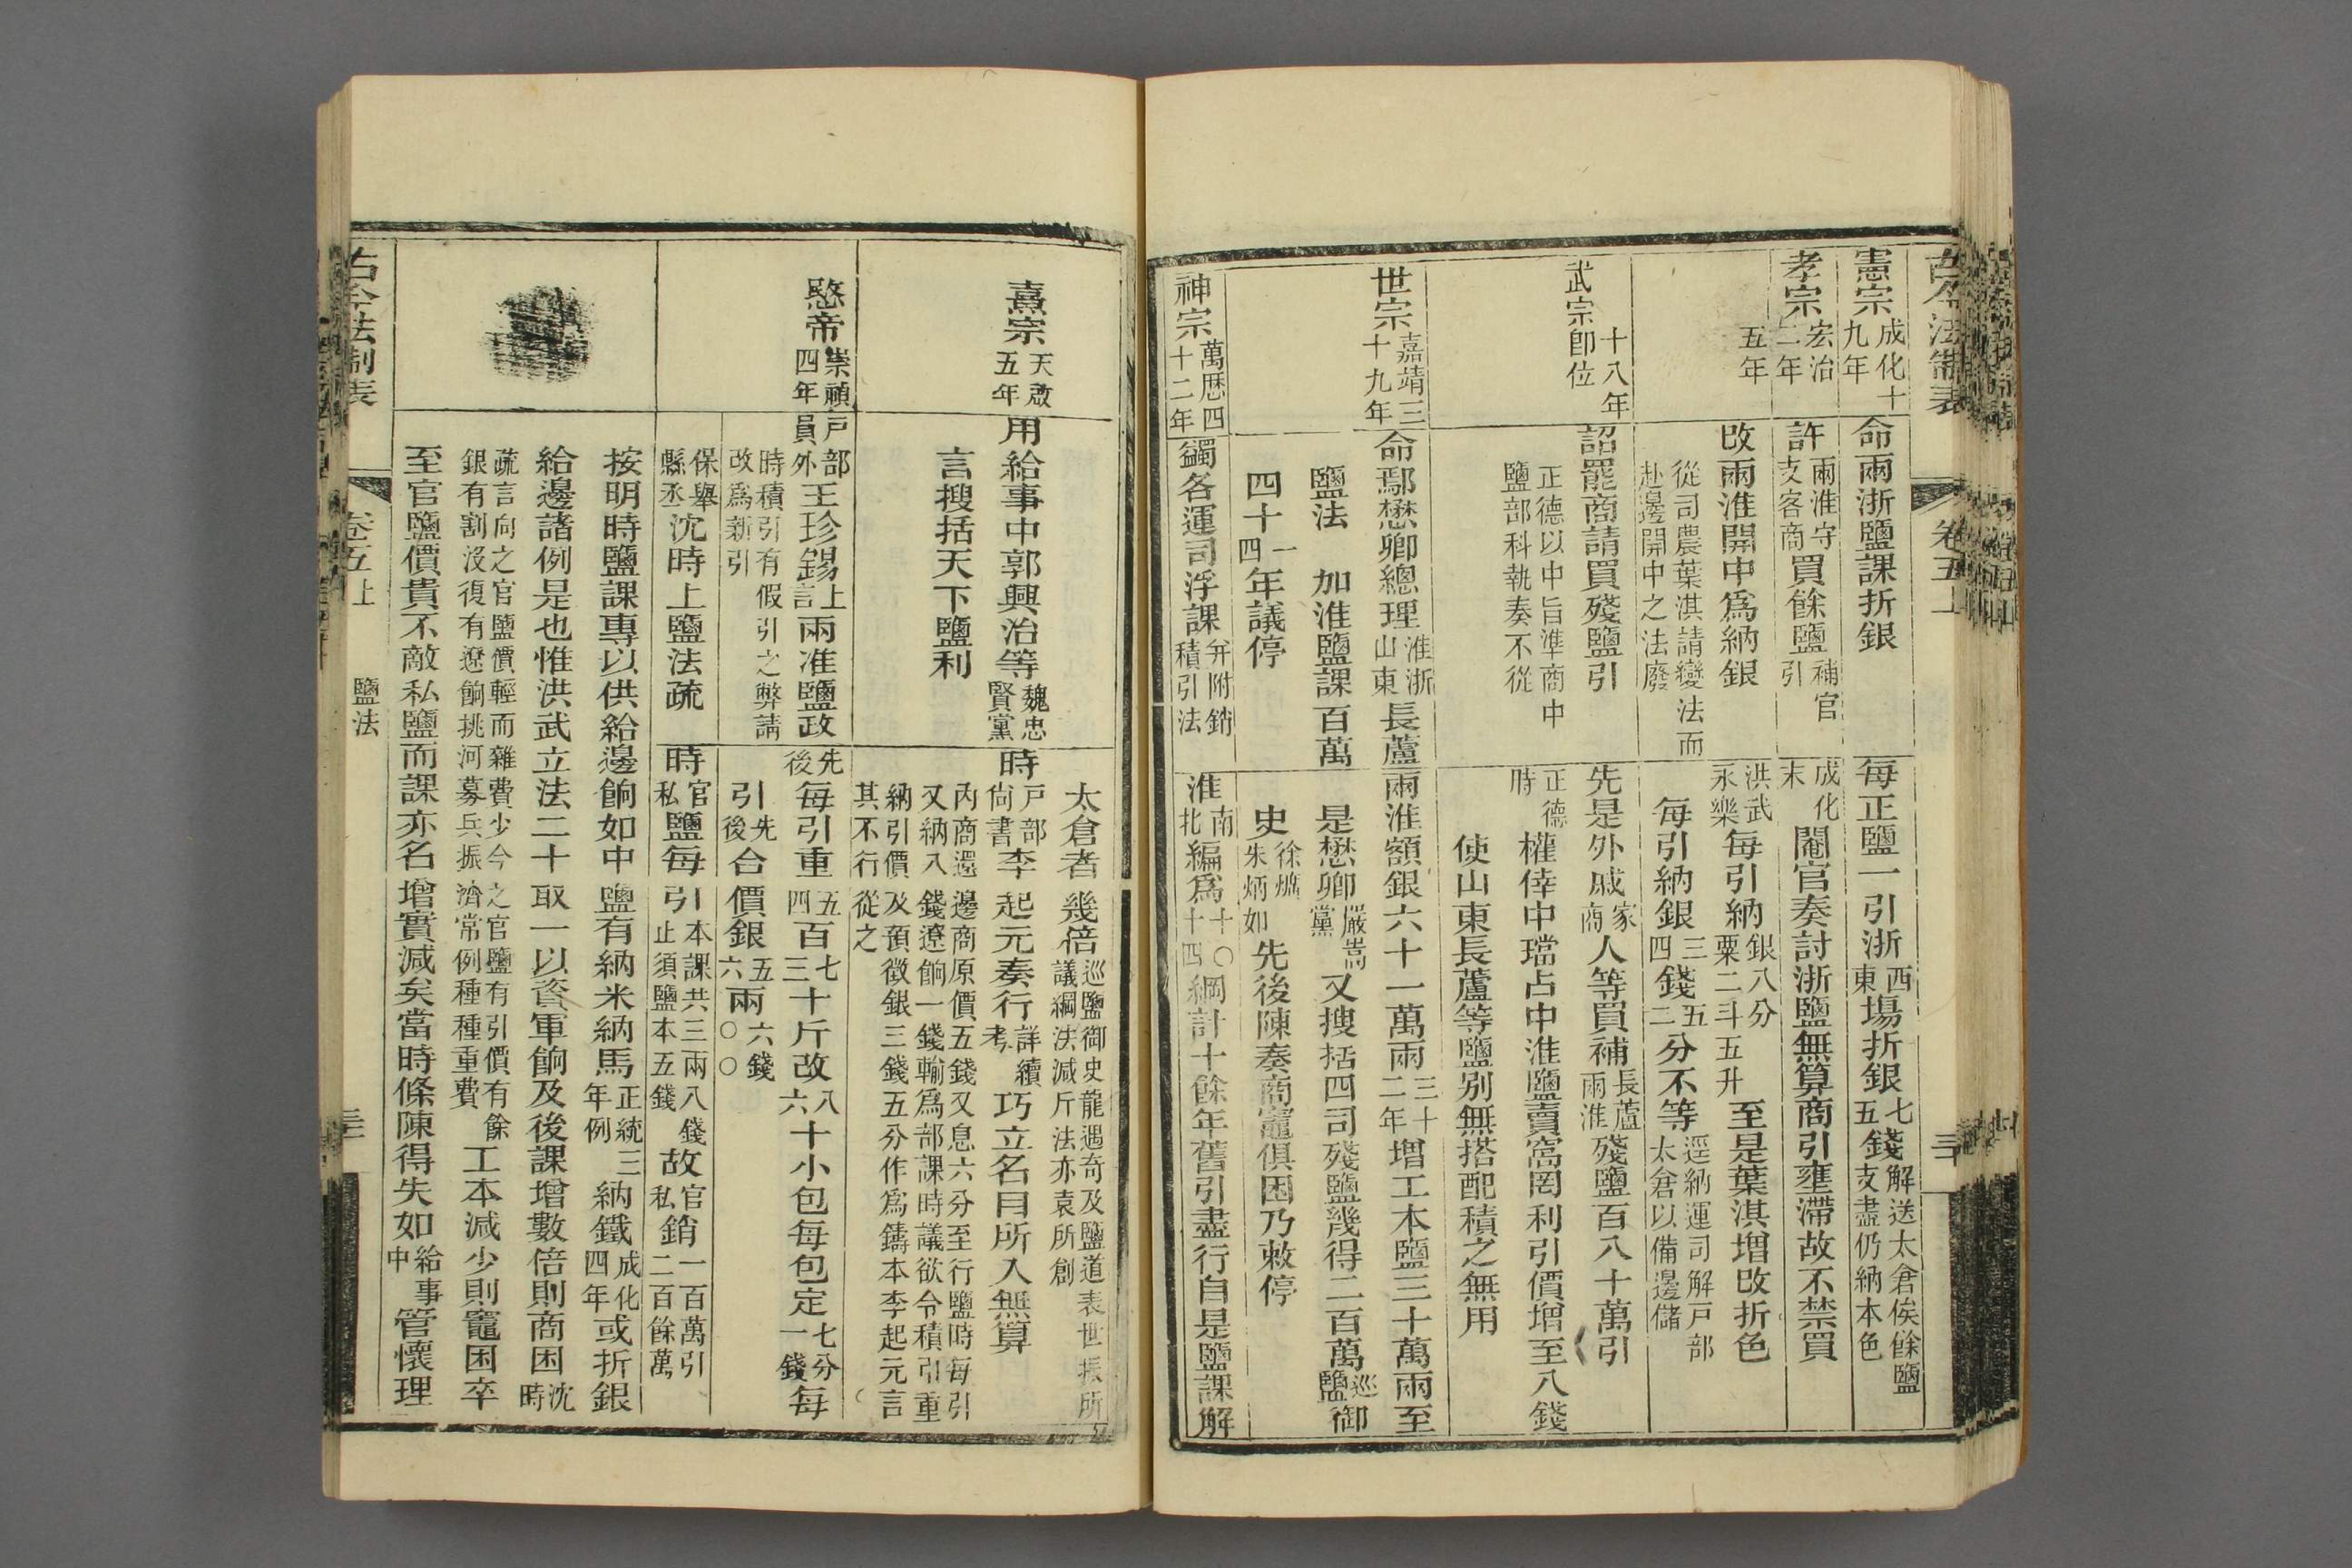 古今法制表　卷五上　三十
憲宗成化十九年
命兩浙鹽課折銀
每正鹽一引浙西東場折銀七五錢解送太倉俟餘鹽支盡仍納本色
孝宗宏治二年
許兩淮守支客商買餘鹽補官引
成化末閹官奏討浙鹽無算商引壅滯故不禁買
五年
改兩淮開中爲納銀
從司農葉淇請變法而赴邊開中之法廢
洪武永樂每引納銀八分粟二斗五升至是葉淇增改折色
每引納銀三四錢五二分不等逕納運司解戶部太倉以備邊儲
武宗十八年卽位
詔罷商請買殘鹽引
正德以中旨準商中鹽部科執奏不從
先是外戚家商人等買補長蘆兩淮殘鹽百八十萬引
正德時權倖中璫占中淮鹽賣窩罔利引價增至八錢
使山東長蘆等鹽別無搭配積之無用
世宗嘉靖三十九年
命鄢懋卿總理淮浙山東長蘆
鹽法　加淮鹽課百萬
四十一四年議停
兩淮額銀六十一萬兩三十二年增工本鹽三十萬兩至
是懋卿嚴嵩黨又搜括四司殘鹽幾得二百萬巡鹽御
史徐爌朱炳如先後陳奏商竈俱困乃敕停
神宗萬歷四十二年
蠲各運司浮課并附銷積引法
淮南北編爲十〇十四綱計十餘年舊引盡行自是鹽課解
太倉者幾倍巡鹽御史龍遇奇及鹽道袁世振所議綱法減斤法亦袁所創
熹宗天啟五年
用給事中郭興治等魏忠賢黨
言搜括天下鹽利
時戶部尙書李起元奏行詳續考巧立名目所入無算
丙商還邊商原價五錢又息六分至行鹽時每引又納入錢遼餉一錢輸爲部課時議欲令積引重
納引價及預徵銀三錢五分作爲鑄本李起元言其不行從之
愍帝崇禎四年
戶部員外王珍錫上言兩淮鹽政
時積引有假引之弊請改爲新引
先後每引重五四百七三十斤改八六十小包每包定七分一錢每
引先後合價銀五六兩六錢〇〇
保舉縣丞沈時上鹽法疏
時官私鹽每引本課共三兩八錢止須鹽本五錢故官私銷一百萬引二百餘萬
按明時鹽課專以供給邊餉如中鹽有納米納馬正統三年例納鐵成化四年或折銀
給邊諸例是也惟洪武立法二十取一以資軍餉及後課增數倍則商困沈時
疏言向之官鹽價輕而雜費少今之官鹽有引價有餘銀有割沒復有遼餉挑河募兵振濟常例種種重費工本減少則竈困卒
至官鹽價貴不敵私鹽而課亦名增實減矣當時條陳得失如給事中管懷理
古今法制表　卷五上　鹽法